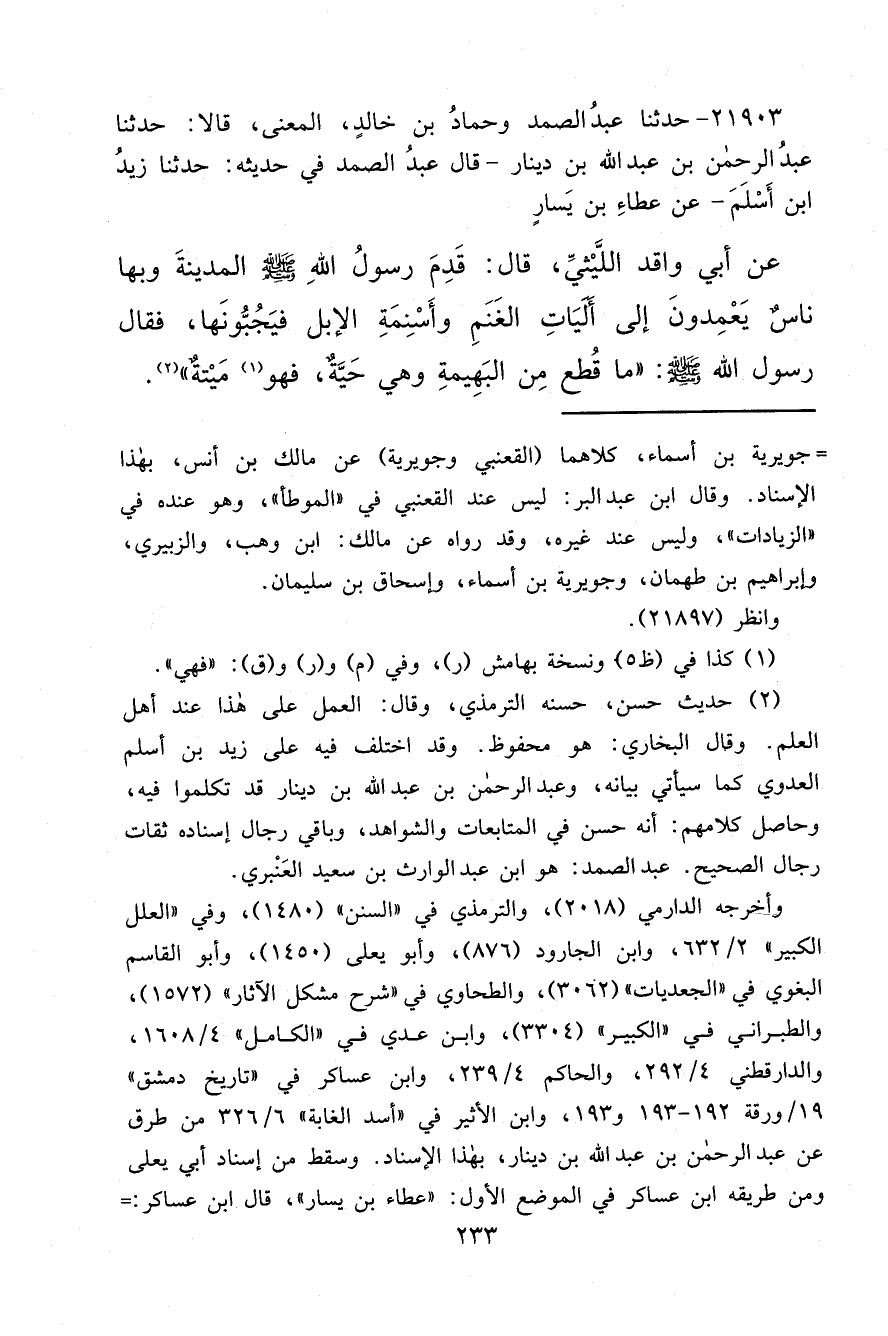 ٢١٩٠٣- حدثنا عبدُ الصمد وحمادُ بن خالدٍ، المعنى، قالا: حدثنا
عبدُ الرحمٰن بن عبد الله بن دينار -قال عبدُ الصمد في حديثه: حدثنا زيدُ
ابن أَسْلَمَ- عن عطاءِ بن يَسارٍ
عن أبي واقد اللَّيْثيِّ، قال: قَدِمَ رسولُ اللهِ ﷺ المدينةَ وبها
ناسٌ يَعْمِدونَ إلى أَلَيَاتِ الغَنَمِ وأَسْنِمَةِ الإبل فيَجُبُّونَها، فقال
رسول الله ﷺ: «ما قُطع مِن البَهِيمةِ وهي حَيَّةٌ، فهو(١) مَيْتةٌ»(٢).
=جويرية بن أسماء، كلاهما (القعنبي وجويرية) عن مالك بن أنس، بهٰذا
الإسناد. وقال ابن عبد البر: ليس عند القعنبي في «الموطأ»، وهو عنده في
«الزيادات»، وليس عند غيره، وقد رواه عن مالك: ابن وهب، والزبيري،
وإبراهيم بن طهمان، وجويرية بن أسماء، وإسحاق بن سليمان.
وانظر (٢١٨٩٧).
(١) كذا في (ظ٥) ونسخة بهامش (ر)، وفي (م) و(ر) و(ق): «فهي».
(٢) حديث حسن، حسنه الترمذي، وقال: العمل على هٰذا عند أهل
العلم. وقال البخاري: هو محفوظ. وقد اختلف فيه على زيد بن أسلم
العدوي كما سيأتي بيانه، وعبد الرحمٰن بن عبد الله بن دينار قد تكلموا فيه،
وحاصل كلامهم: أنه حسن في المتابعات والشواهد، وباقي رجال إسناده ثقات
رجال الصحيح. عبد الصمد: هو ابن عبد الوارث بن سعيد العَنْبري.
وأخرجه الدارمي (٢٠١٨)، والترمذي في «السنن» (١٤٨٠)، وفي «العلل
الكبير» ٦٣٢/٢، وابن الجارود (٨٧٦)، وأبو يعلى (١٤٥٠)، وأبو القاسم
البغوي في «الجعديات» (٣٠٦٢)، والطحاوي في «شرح مشكل الآثار» (١٥٧٢)،
والطبراني في «الكبير» (٣٣٠٤)، وابن عدي في «الكامل» ١٦٠٨/٤،
والدارقطني ٢٩٢/٤، والحاكم ٢٣٩/٤، وابن عساكر في «تاريخ دمشق»
١٩/ورقة ١٩٢-١٩٣ و١٩٣، وابن الأثير في «أسد الغابة» ٣٢٦/٦ من طرق
عن عبد الرحمٰن بن عبد الله بن دينار، بهٰذا الإسناد. وسقط من إسناد أبي يعلى
ومن طريقه ابن عساكر في الموضع الأول: «عطاء بن يسار»، قال ابن عساكر:=
٢٣٣